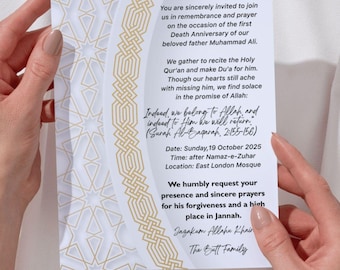 You are sincerely invited to join
us in remembrance and prayer
on the occasion of the first
Death Anniversary of our
beloved father Muhammad Ali.
We gather to recite the Holy
Qur'an and make Du'a for him.
Though our hearts still ache
with missing him, we find solace
in the promise of Allah:
Indeed we belong to Allah, and
indeed to Him we will return,"
(Surah Al-Baqarah, 2:155-156)
Date: Sunday,19 October 2025
Time: after Namaz-e-Zuhar
Location: East London Mosque
We humbly request your
presence and sincere prayers
for his forgiveness and a high
place in Jannah.
Jazakum Allahu Khair
The Butt Family